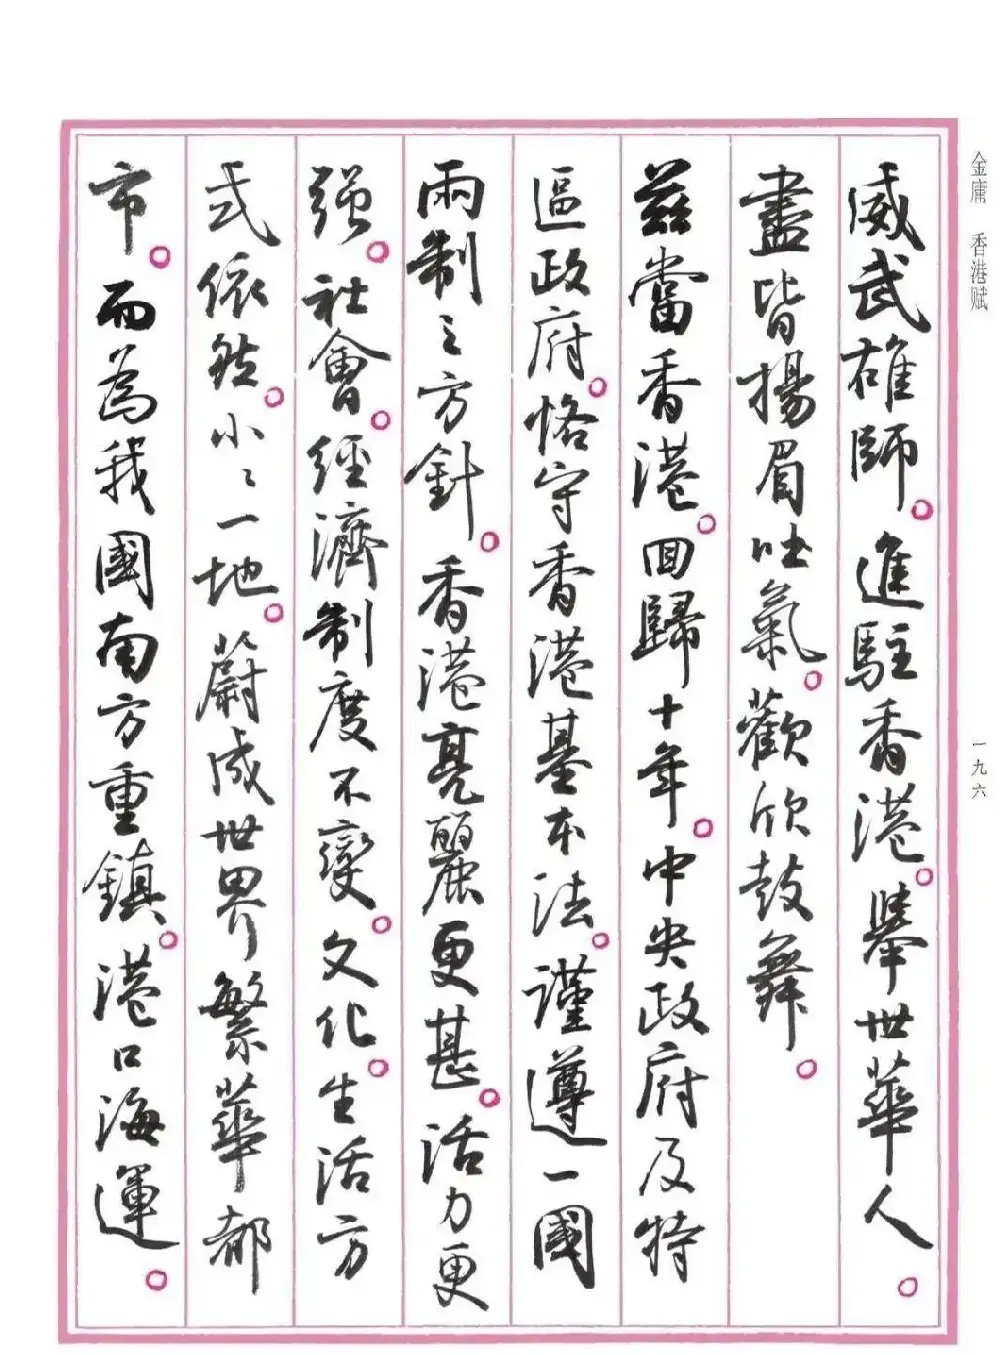 金庸 香港赋
一九六
威武雄師。進駐香港。舉世華人。
盡皆揚眉吐氣。歡欣鼓舞。
兹當香港。回歸十年。中央政府及特
區政府。恪守香港基本法。謹遵一國
兩制之方針。香港亮麗更甚。活力更
强。社會。經濟制度不變。文化。生活方
式依然。小〻一地。蔚成世界繁華都
市。而為我國南方重鎮。港口海運。